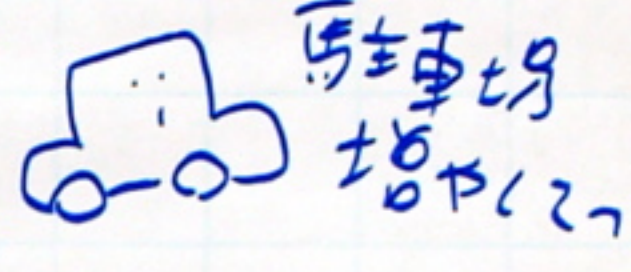 駐車場
増やしてっ